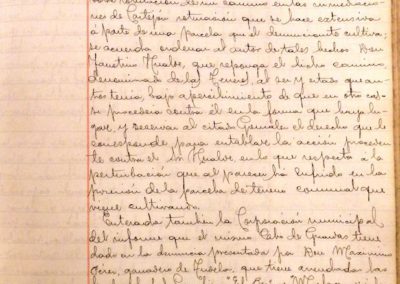 de un camino en las inmediacio-
nes de Cartejón, roturación que se hace extensiva
á parte de una parcela que el denunciante cultiva;
se acuerda ordenar al autor de tales hechos Don
Faustino Hualve, que reponga el dicho camino
denominado de las Heras, al ser y estado que an-
tes tenía, bajo apercibimiento de que en otro ca-
so procederá contra él en la forma que haya lu-
gar, y reservar al citado el derecho que le
corresponde para entablar la acción proceden-
te contra el Sr. Hualve, en lo que respecta á la
perturbación que al parecer ha sufrido en la
posesión de la parcela de terreno comunal que
viene cultivando.
Enterada también la Corporación municipal
del informe que el mismo Cabo de Guardas tiene
dado en la denuncia presentada por Don Maximino
ganadero de Tudela, que tiene arrendada las